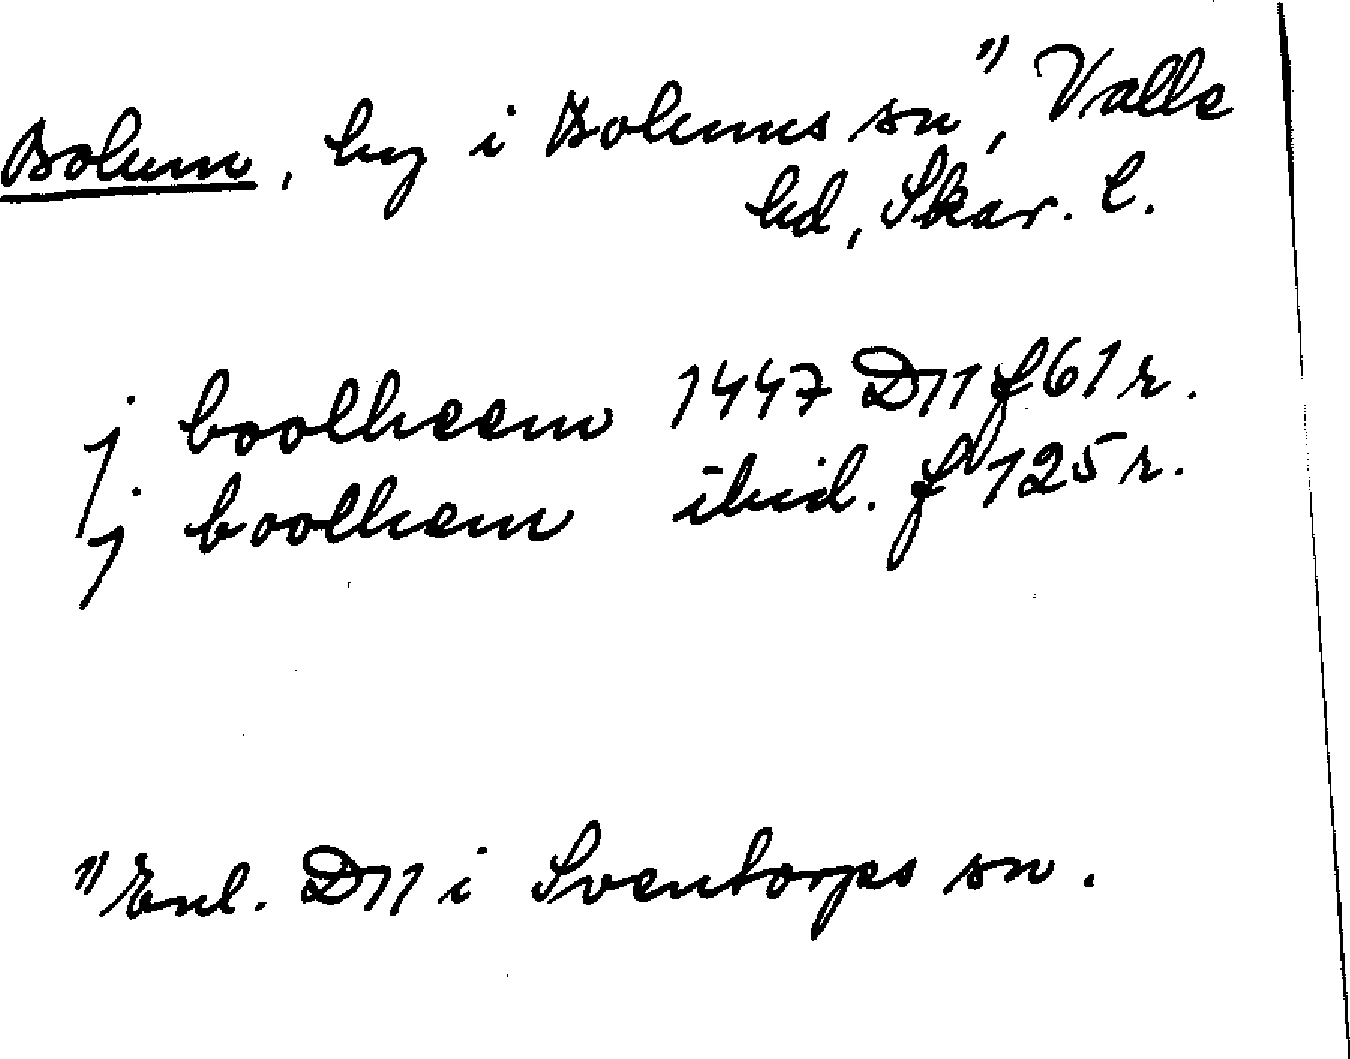 Bolum, by i Bolums sn", Valle
hd, Skar. l.
j boolheem 1447 D11 f 61 r.
j boolhem ibid. f 125 r.
"Enl. D11 i Sventorps sn.